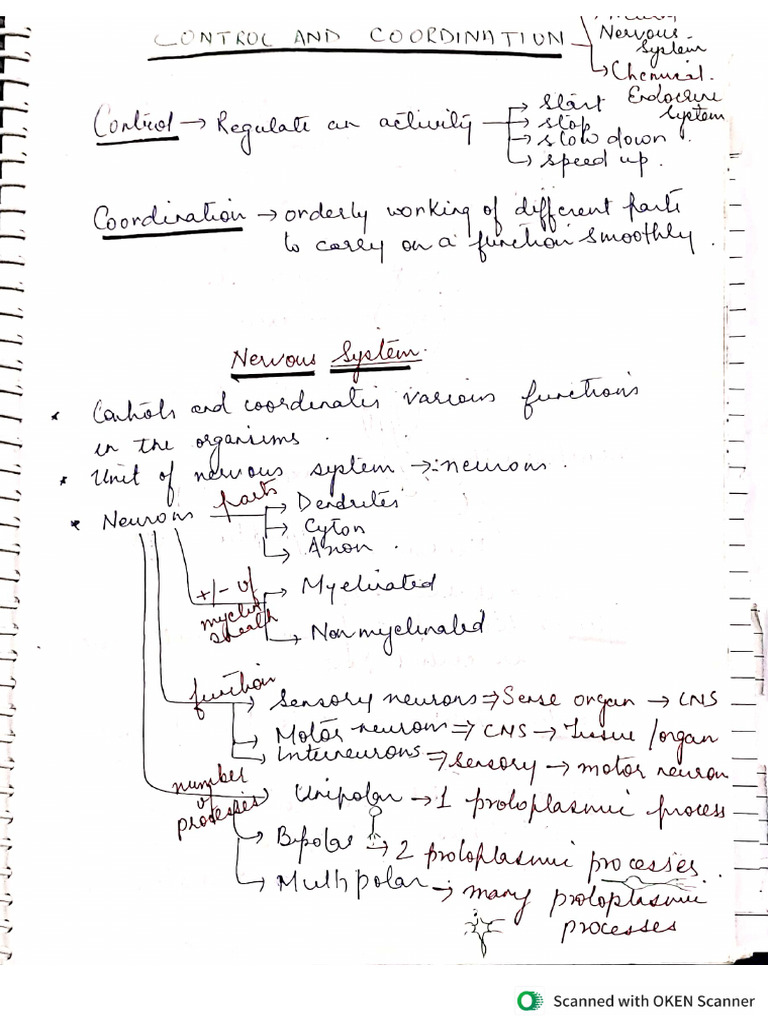 CONTROL AND COORDINATION
Nervous
System
→ Chemical.
Endocrine
System
Control → Regulate an activity → start
→ stop
→ slow down.
→ speed up.
Coordination → orderly working of different parts
to carry on a function smoothly.
Nervous System.
* Controls and coordinates various functions
in the organisms.
* Unit of nervous system → neuron.
* Neurons parts → Dendrites
→ Cyton
→ Axon.
+/- of
myelin
sheath
→ Myelinated
→ Non myelinated
function
→ Sensory neurons ⇒ Sense organ → CNS
→ Motor neurons ⇒ CNS → Tissue/organ
→ Interneurons ⇒ sensory → motor neuron
number
of
processes
→ Unipolar → 1 protoplasmic process
→ Bipolar → 2 protoplasmic processes.
→ Multipolar → many protoplasmic
processes
Scanned with OKEN Scanner